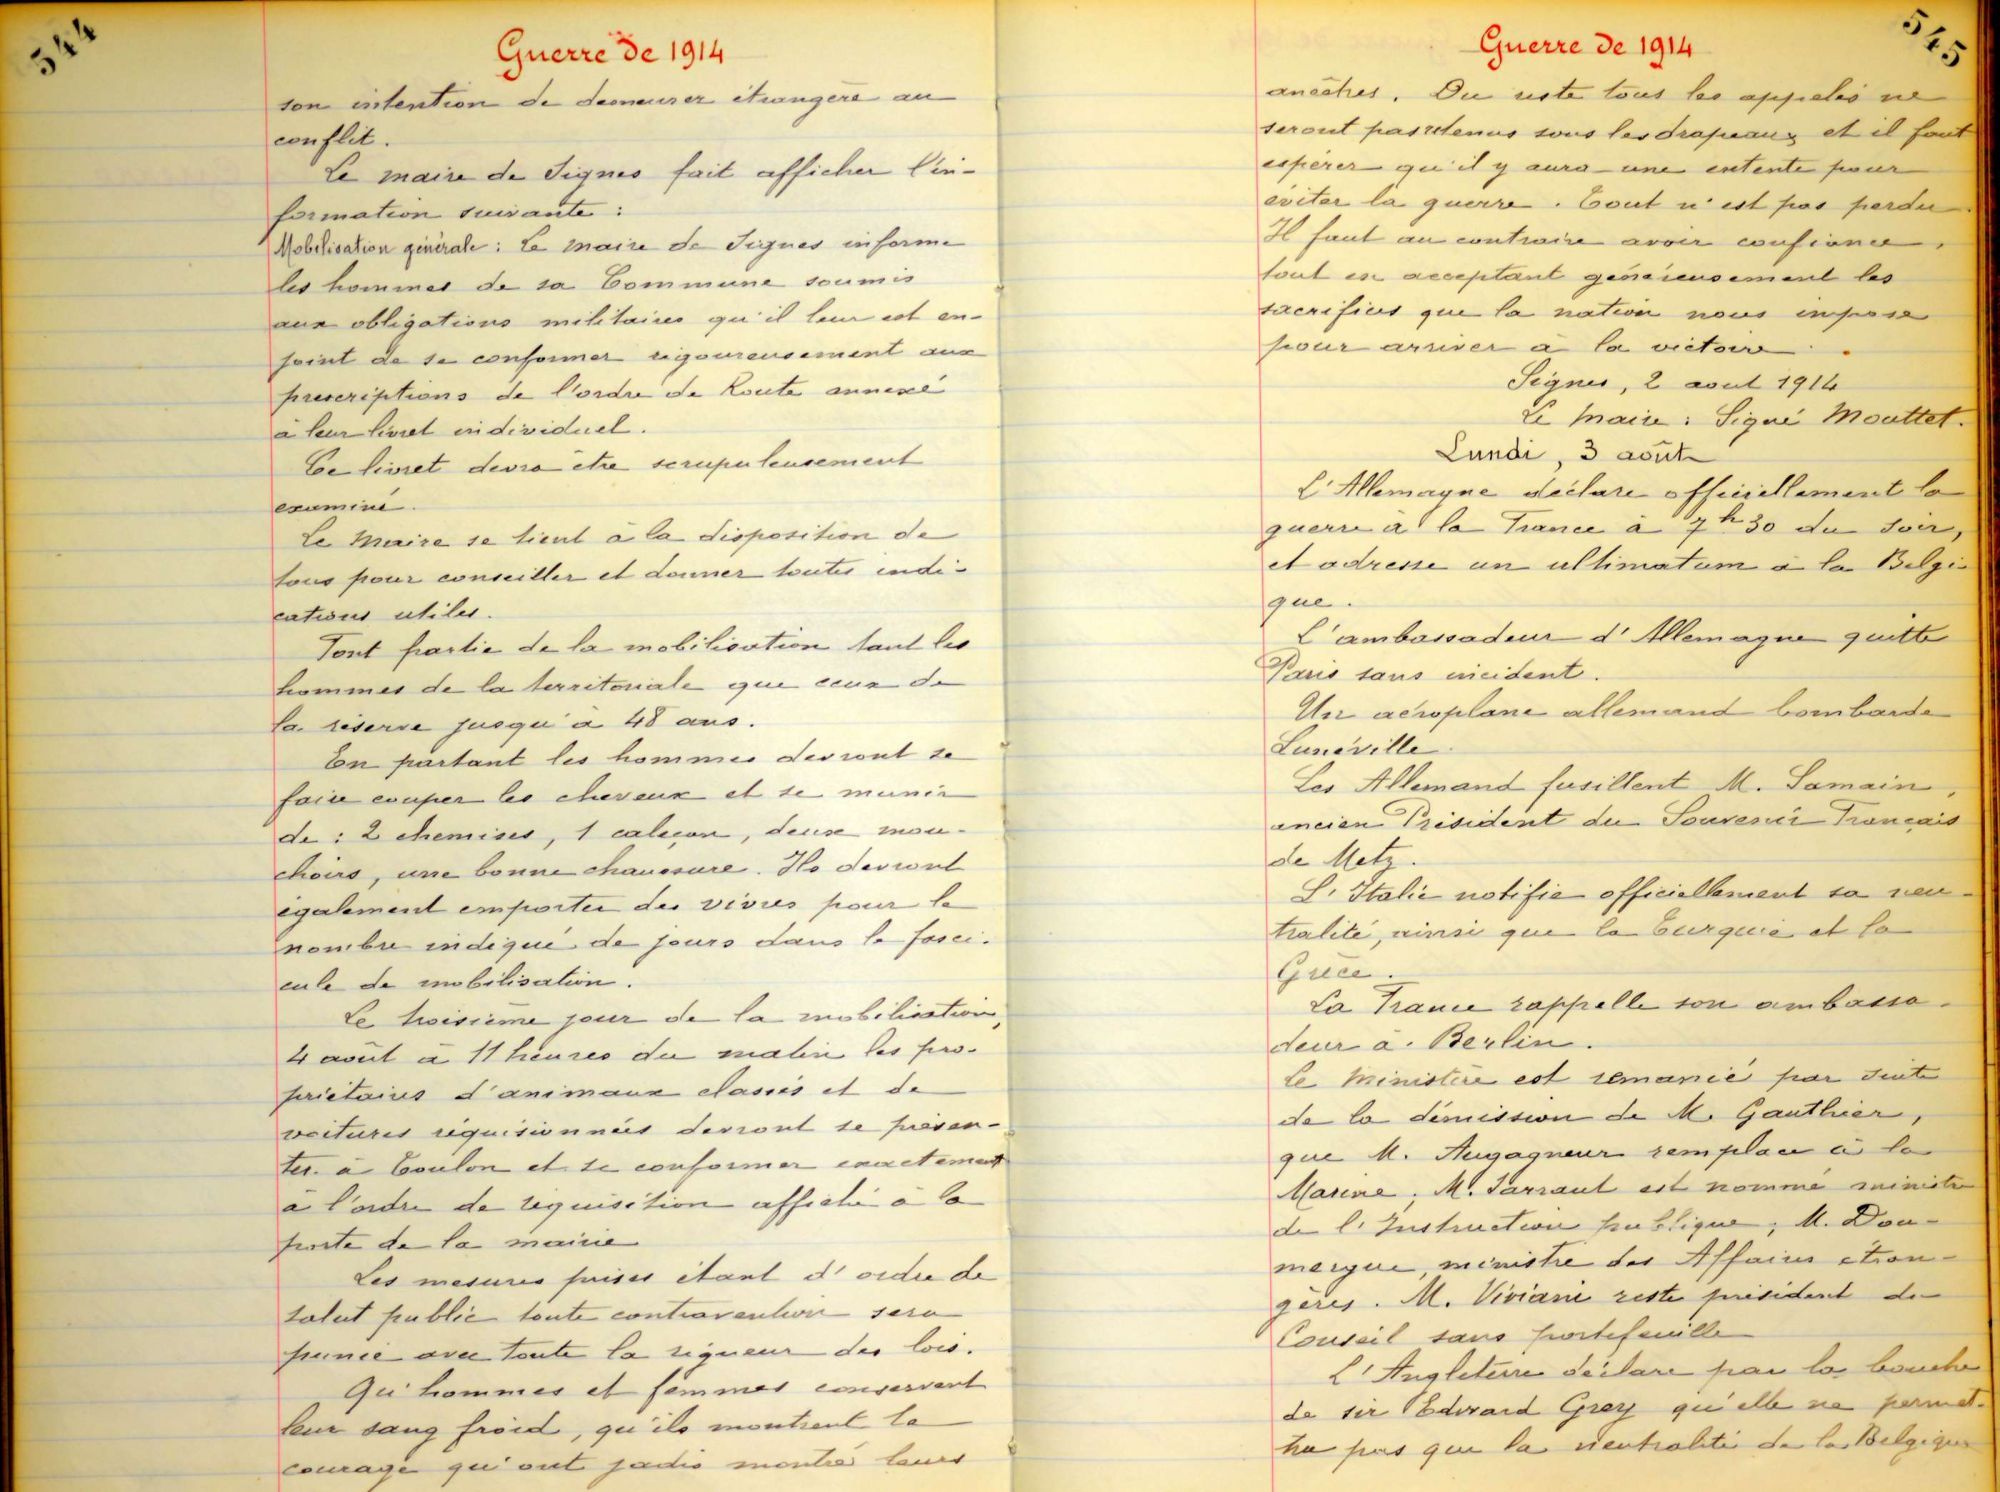 544
Guerre de 1914
son intention de demeurer étrangère au
conflit.
Le maire de Signes fait afficher l'in-
formation suivante :
Mobilisation générale : Le maire de Signes informe
les hommes de sa Commune soumis
aux obligations militaires qu'il leur est en-
joint de se conformer rigoureusement aux
prescriptions de l'ordre de Route annexé
à leur livret individuel.
Ce livret devra être scrupuleusement
examiné.
Le Maire se tient à la disposition de
tous pour conseiller et donner toutes indi-
cations utiles.
Font partie de la mobilisation tant les
hommes de la territoriale que ceux de
la réserve jusqu'à 48 ans.
En partant les hommes devront se
faire couper les cheveux et se munir
de : 2 chemises, 1 caleçon, deux mou-
choirs, une bonne chaussure. Ils devront
également emporter des vivres pour le
nombre indiqué de jours dans le fasci-
cule de mobilisation.
Le troisième jour de la mobilisation,
4 août à 11 heures du matin les pro-
priétaires d'animaux classés et de
voitures réquisionnées devront se présen-
ter à Toulon et se conformer exactement
à l'ordre de réquisition affiché à la
porte de la mairie
Les mesures prises étant d'ordre de
salut public toute contravention sera
punie avec toute la rigueur des lois.
Qu'hommes et femmes conservent
leur sang froid, qu'ils montrent le
courage qu'ont jadis montré leurs
545
Guerre de 1914
ancêtres. Du reste tous les appelés ne
seront pas retenus sous les drapeaux et il faut
espérer qu'il y aura une entente pour
éviter la guerre. Tout n'est pas perdu.
Il faut au contraire avoir confiance,
tout en acceptant généreusement les
sacrifices que la nation nous impose
pour arriver à la victoire.
Signes, 2 aout 1914
Le Maire : Signé Mouttet.
Lundi, 3 août
L'Allemagne déclare officiellement la
guerre à la France à 7h30 du soir,
et adresse un ultimatum à la Belgi-
que.
L'ambassadeur d'Allemagne quitte
Paris sans incident.
Un aéroplane allemand bombarde
Lunéville.
Les Allemand fusillent M. Samain,
ancien Président du Souvenir Français
de Metz.
L'Italie notifie officiellement sa neu-
tralité, ainsi que la Turquie et la
Grèce.
La France rappelle son ambassa-
deur à Berlin.
Le Ministère est remanié par suite
de la démission de M. Gauthier,
que M. Augagneur remplace à la
Marine, M. Sarraut est nommé ministre
de l'Instruction publique, M. Dou-
mergue, ministre des Affaires étran-
gères. M. Viviani reste président du
Conseil sans portefeuille
L'Angleterre déclare par la bouche
de sir Edward Grey qu'elle ne permet-
tra pas que la neutralité de la Belgique